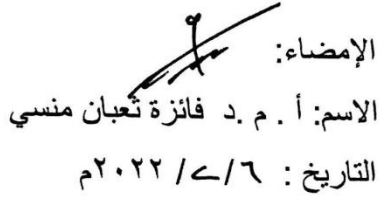 الإمضاء:
الاسم: أ . م .د فائزة ثعبان منسي
التاريخ : ٦/ /٢٠٢٢م